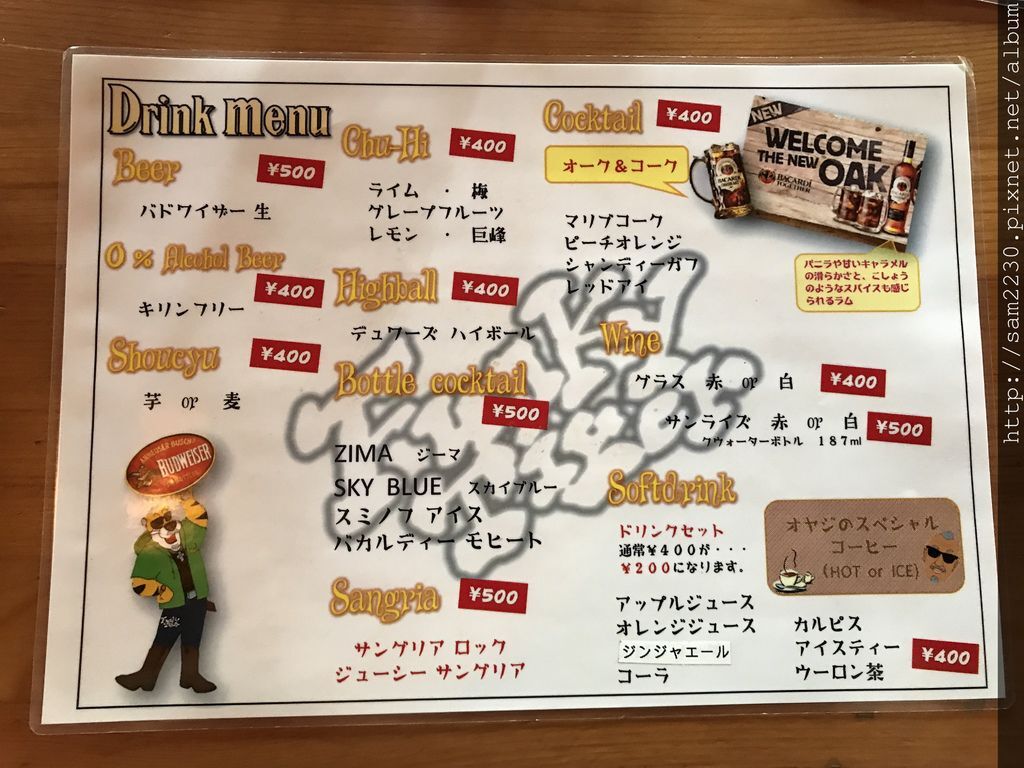 Drink menu
Beer ¥500
バドワイザー 生
0 % Alcohol Beer
¥400
キリンフリー
Shoucyu ¥400
芋 or 麦
BUDWEISER
Chu-Hi ¥400
ライム ・ 梅
グレープフルーツ
レモン ・ 巨峰
Highball ¥400
デュワーズ ハイボール
Bottle cocktail
¥500
ZIMA ジーマ
SKY BLUE スカイブルー
スミノフ アイス
バカルディー モヒート
Sangria ¥500
サングリア ロック
ジューシー サングリア
Cocktail ¥400
オーク＆コーク
マリブコーク
ピーチオレンジ
シャンディーガフ
レッドアイ
NEW
WELCOME
THE NEW
OAK
BACARDI
TOGETHER
バニラや甘いキャラメル
の滑らかさと、こしょう
のようなスパイスも感じ
られるラム
Wine
グラス 赤 or 白 ¥400
サンライズ 赤 or 白 ¥500
クウォーターボトル 187ml
Softdrink
ドリンクセット
通常¥400が・・・
¥200になります。
オヤジのスペシャル
コーヒー
(HOT or ICE)
アップルジュース
オレンジジュース
ジンジャエール
コーラ
カルピス
アイスティー
ウーロン茶
¥400
http://sam2230.pixnet.net/album